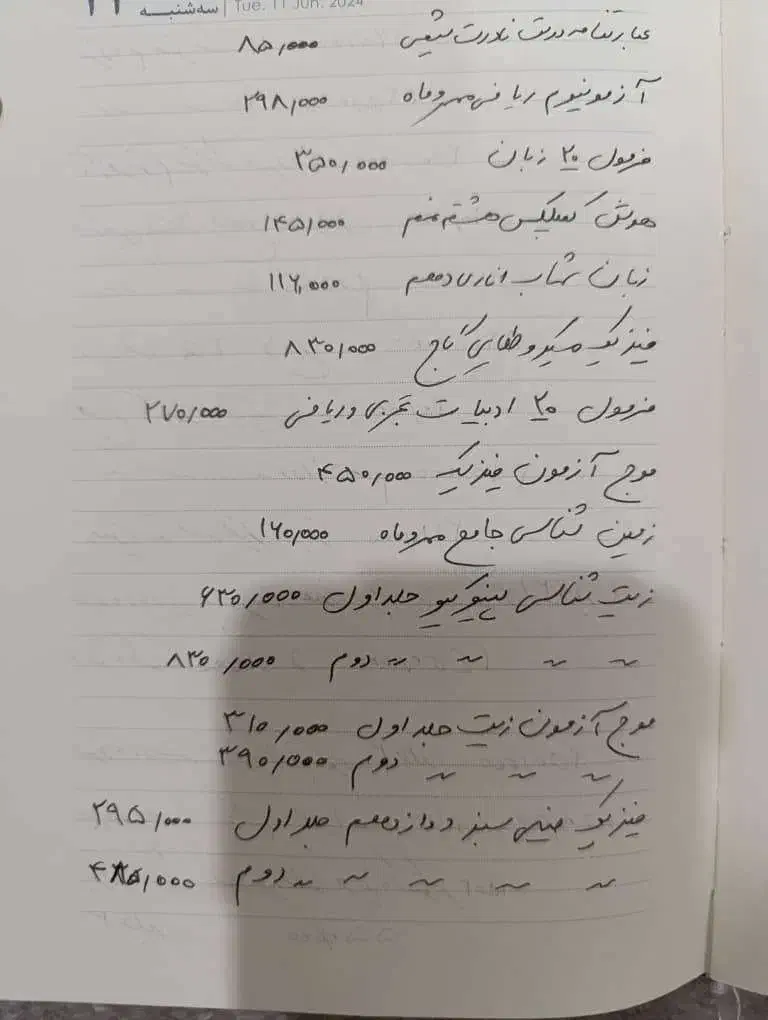 سه‌شنبه | Tue. 11 Jun. 2024
۸۵/۰۰۰
آزمونیوم ریاضی مهروماه ۲۹۸/۰۰۰
فرمول ۲۰ زبان ۳۵۰/۰۰۰
هوش کمپلکس هشتم نهم ۱۴۵/۰۰۰
زبان شهاب اناری دهم ۱۱۶,۰۰۰
فیزیک میکرو طلایی گاج ۸۳۰/۰۰۰
فرمول ۲۰ ادبیات تجربی و ریاضی ۲۷۰/۰۰۰
موج آزمون فیزیک ۴۵۰/۰۰۰
زمین شناسی جامع مهروماه ۱۶۰/۰۰۰
زیست شناسی جلد اول ۶۳۰/۰۰۰
~ ~ ~ ~ دوم ۸۳۰/۰۰۰
موج آزمون زیست جلد اول ۳۱۰/۰۰۰
~ ~ ~ دوم ۳۹۰/۰۰۰
فیزیک خیلی سبز دوازدهم جلد اول ۲۹۵/۰۰۰
~ ~ ~ ~ ~ دوم